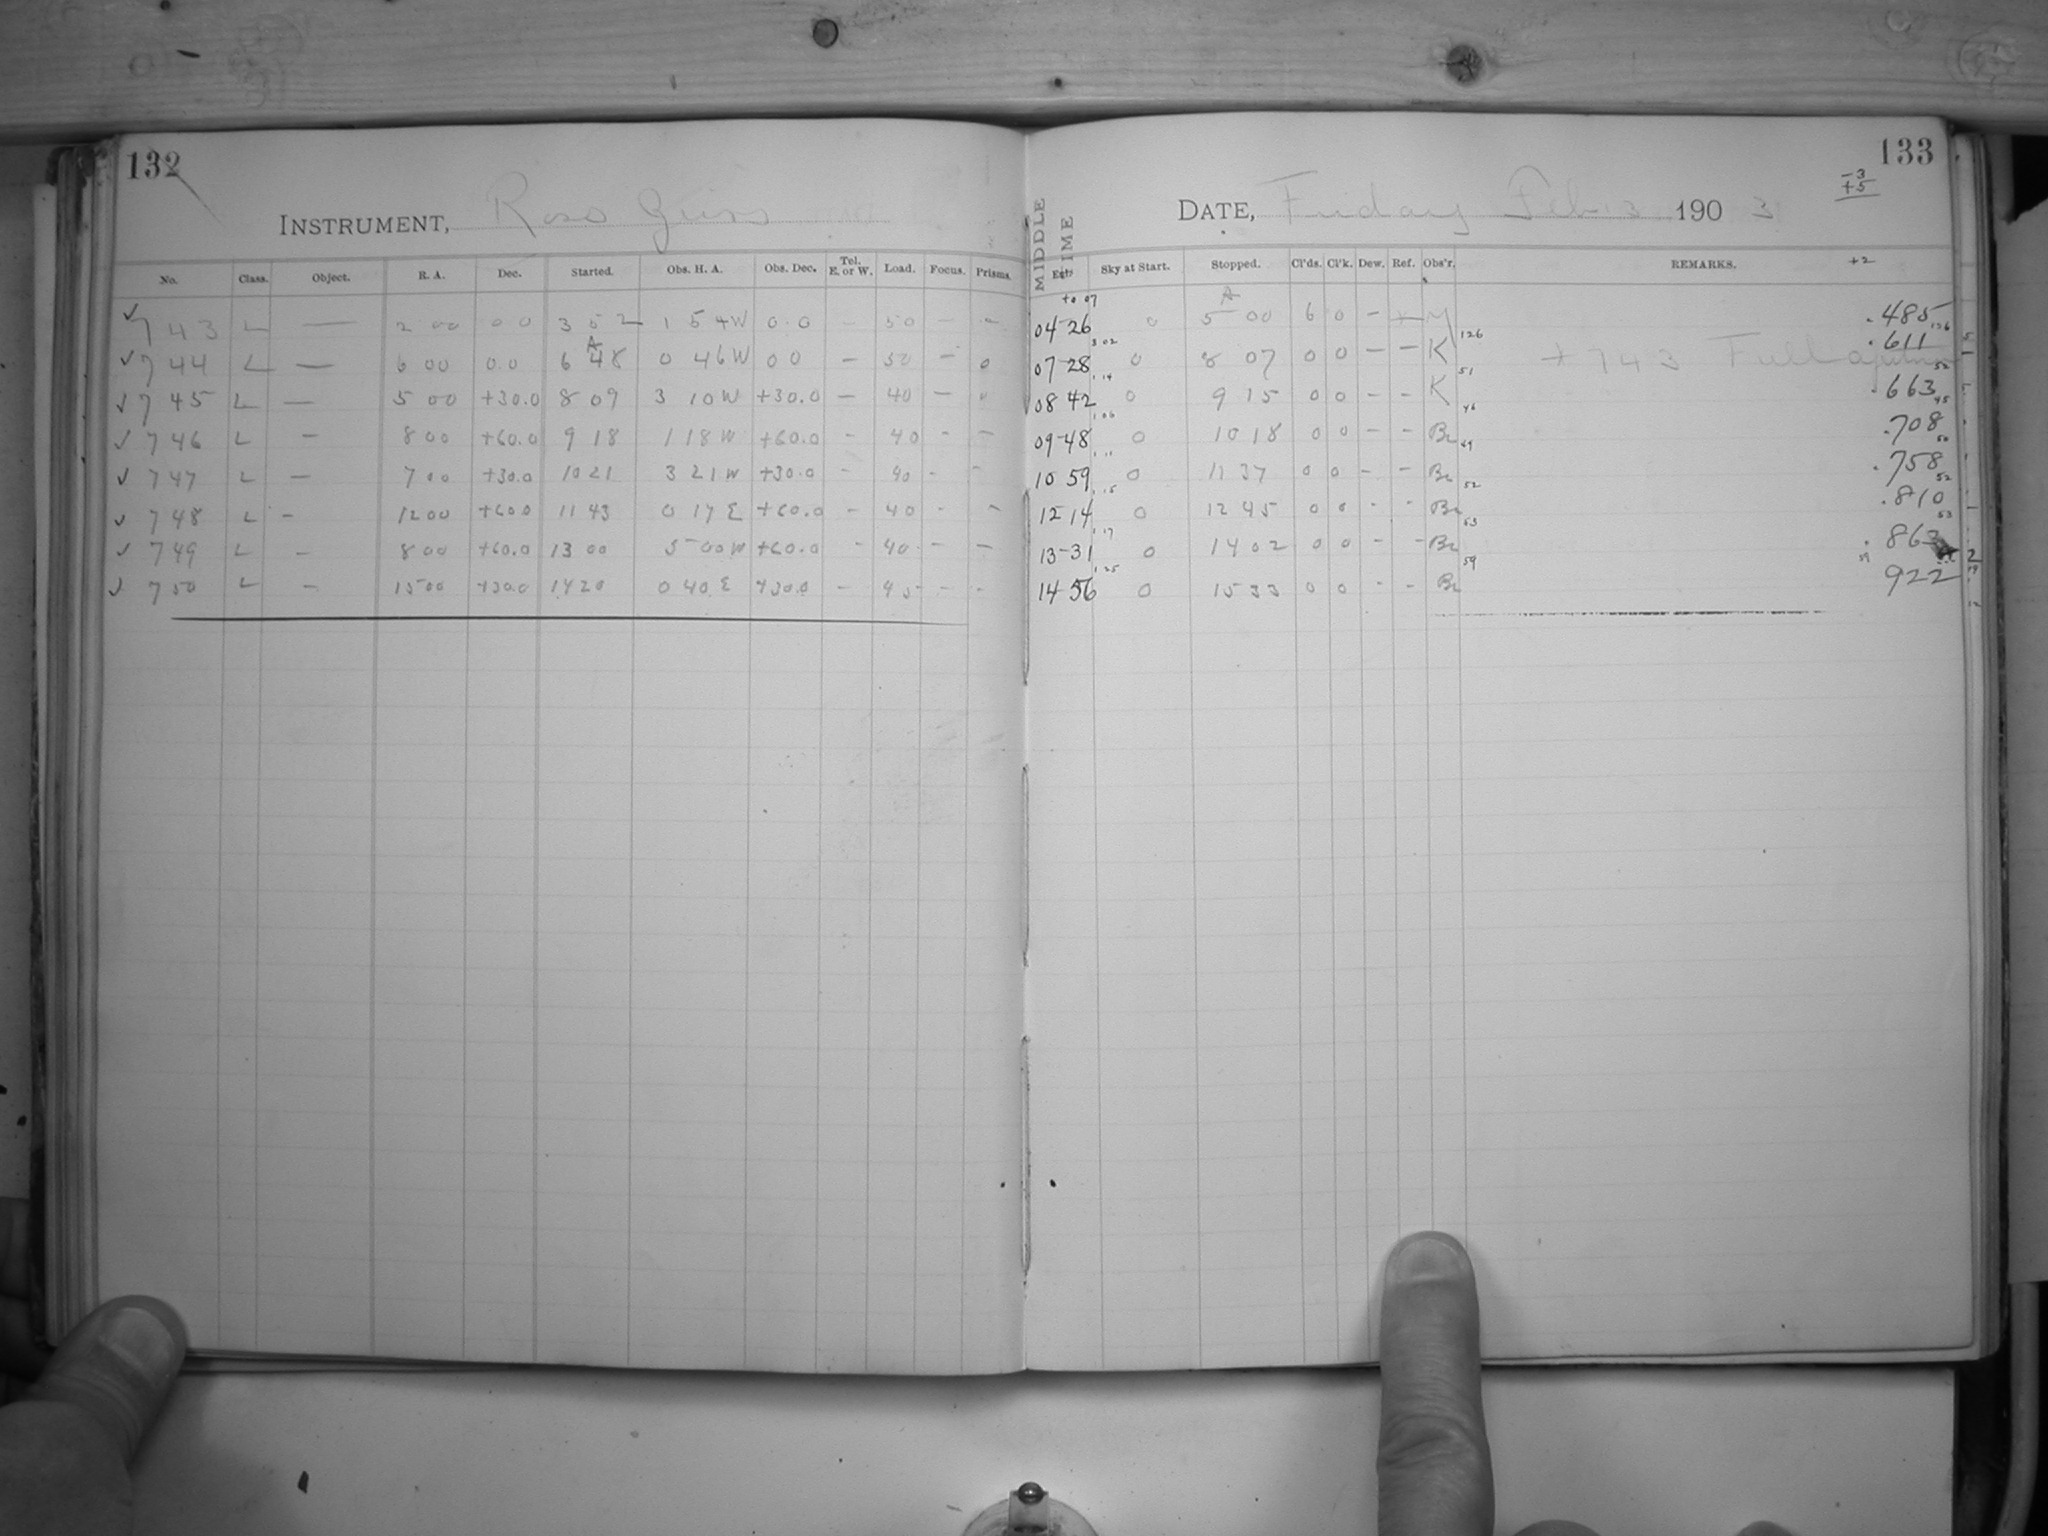 132
INSTRUMENT, Ross
No. Class. Object. R. A. Dec. Started. Obs. H. A. Obs. Dec. Tel. E. or W. Load. Focus. Prisms.
✓ 743 L — 2 00 0 0 3 52 1 54 W 0.0 — 50 — —
✓ 744 L — 6 00 0.0 6 48 0 46 W 0 0 — 50 — 0
✓ 745 L — 5 00 +30.0 8 09 3 10 W +30.0 — 40 — 0
✓ 746 L — 8 00 +60.0 9 18 1 18 W +60.0 — 40 — —
✓ 747 L — 7 00 +30.0 10 21 3 21 W +30.0 — 40 — —
✓ 748 L — 12 00 +60.0 11 43 0 17 E +60.0 — 40 — —
✓ 749 L — 8 00 +60.0 13 00 5 00 W +60.0 — 40 — —
✓ 750 L — 15 00 +30.0 14 20 0 40 E +30.0 — 45 — —
133
-3
+5
DATE, Friday Feb 13 190 3
MIDDLE TIME
Sky at Start. Stopped. Cl'ds. Cl'k. Dew. Ref. Obs'r. REMARKS. +2
+0 07
04-26 0 5 00 6 0 — M .485
3 02 126 126
07-28 0 8 07 0 0 — — K + 743 Full aperture .611
1 14 51 52
08 42 0 9 15 0 0 — — K .663
1 06 46 45
09-48 0 10 18 0 0 — — Br .708
1 11 49 50
10 59 0 11 37 0 0 — — Br .758
1 15 52 52
12-14 0 12 45 0 0 — — Br .810
1 17 53 53
13-31 0 14 02 0 0 — — Br .863
1 25 59 59
14-56 0 15 33 0 0 — — Br 922